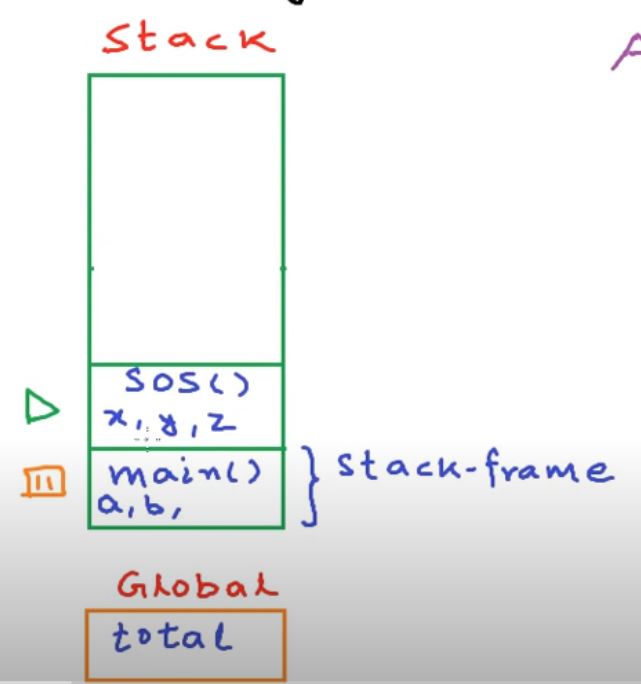 Stack
SOS()
x, y, z
main()
a, b,
stack-frame
Global
total